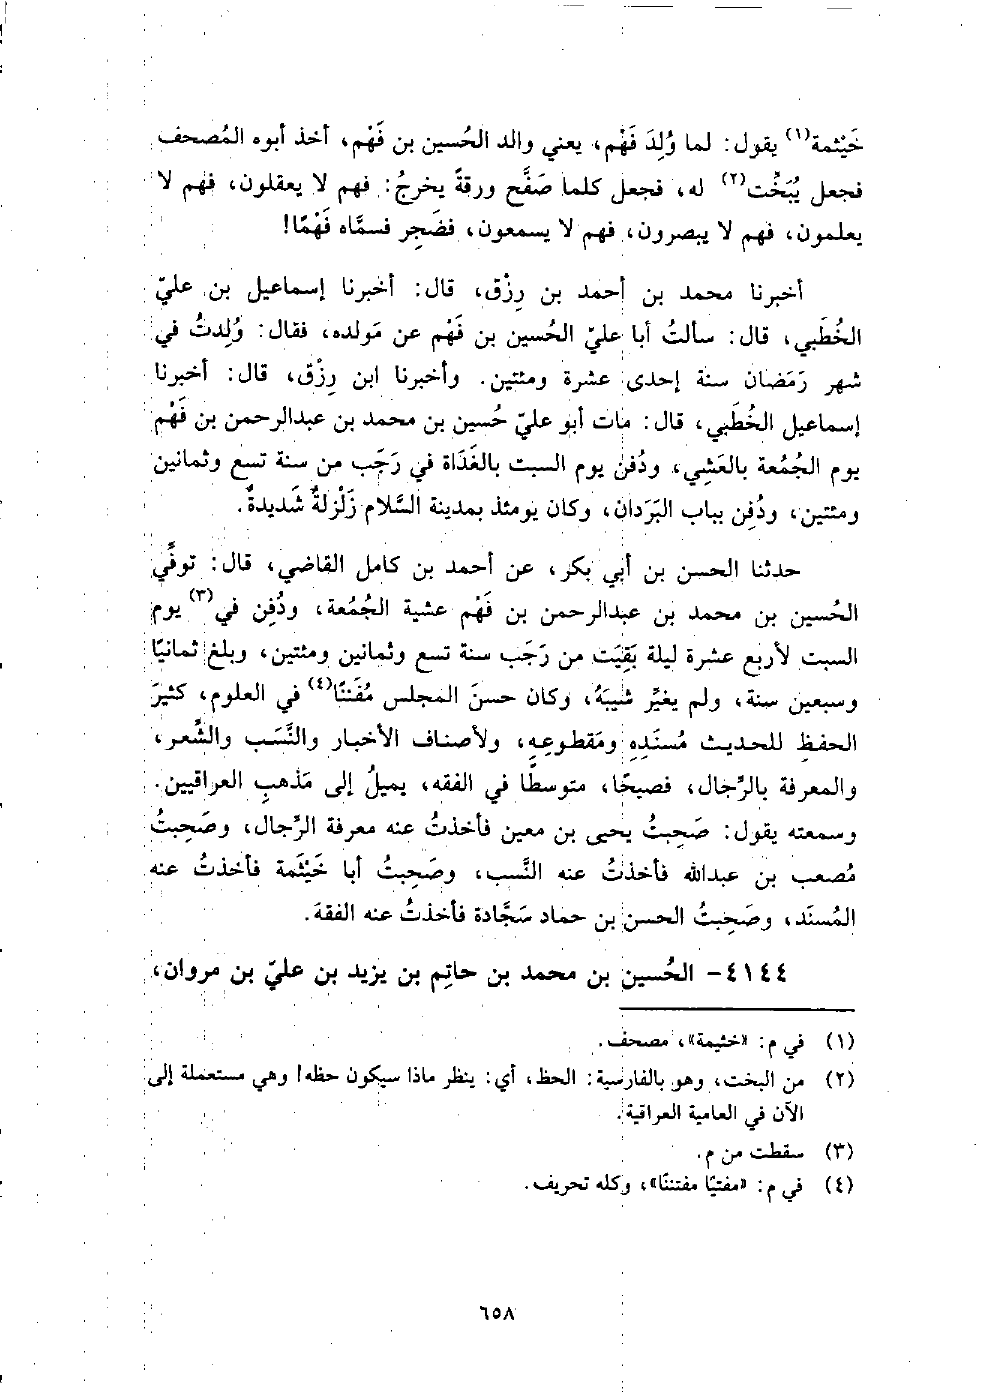 خَيْثمة(١) يقول: لما وُلِدَ فَهْم، يعني والد الحُسين بن فَهْم، أخذ أبوه المُصحف
فجعل يُبَخِّت(٢) له، فجعل كلما صَفَّح ورقةً يخرجُ: فهم لا يعقلون، فهم لا
يعلمون، فهم لا يبصرون، فهم لا يسمعون، فضَجِر فسمَّاه فَهْمًا!
أخبرنا محمد بن أحمد بن رِزْق، قال: أخبرنا إسماعيل بن عليّ
الخُطَبي، قال: سألتُ أبا عليّ الحُسين بن فَهْم عن مَولده، فقال: وُلِدتُ في
شهر رَمَضان سنة إحدى عشرة ومئتين. وأخبرنا ابن رِزْق، قال: أخبرنا
إسماعيل الخُطَبي، قال: مات أبو عليّ حُسين بن محمد بن عبدالرحمن بن فَهْم
يوم الجُمُعة بالعَشِي، ودُفن يوم السبت بالغَدَاة في رَجَب من سنة تسع وثمانين
ومئتين، ودُفِن بباب البَرَدان، وكان يومئذ بمدينة السَّلام زَلْزلةٌ شَديدةٌ.
حدثنا الحسن بن أبي بكر، عن أحمد بن كامل القاضي، قال: توفِّي
الحُسين بن محمد بن عبدالرحمن بن فَهْم عشية الجُمُعة، ودُفِن في(٣) يوم
السبت لأربع عشرة ليلة بَقِيَت من رَجَب سنة تسع وثمانين ومئتين، وبلغ ثمانيًا
وسبعين سنة، ولم يغيِّر شَيبَهُ، وكان حسنَ المجلس مُفَننًا(٤) في العلوم، كثيرَ
الحفظِ للحديث مُسنَدِهِ ومَقطوعِهِ، ولأصناف الأخبار والنَّسَب والشِّعر،
والمعرفة بالرِّجال، فصيحًا، متوسطًا في الفقه، يميلُ إلى مَذهبِ العراقيين.
وسمعته يقول: صَحِبتُ يحيى بن معين فأخذتُ عنه معرفة الرِّجال، وصَحِبتُ
مُصعب بن عبدالله فأخذتُ عنه النَّسب، وصَحِبتُ أبا خَيْثَمة فأخذتُ عنه
المُسنَد، وصَحِبتُ الحسن بن حماد سَجَّادة فأخذتُ عنه الفقهَ.
٤١٤٤- الحُسين بن محمد بن حاتِم بن يزيد بن عليّ بن مروان،
(١) في م: «خثيمة»، مصحف.
(٢) من البخت، وهو بالفارسية: الحظ، أي: ينظر ماذا سيكون حظه! وهي مستعملة إلى
الآن في العامية العراقية.
(٣) سقطت من م.
(٤) في م: «مفتيًا مفتننًا»، وكله تحريف.
٦٥٨